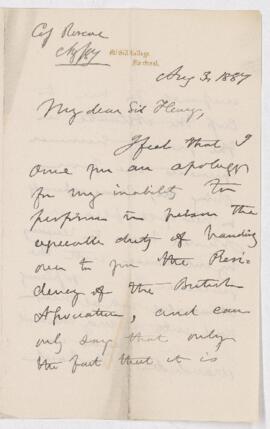 Aug 3, 1887
My dear Sir Henry,
I feel that I
owe you an apology
for my inability to
perform in person the
agreeable duty of handing
over to you the Presi-
dency of the British
Association, and can
only say that only
the fact that it is